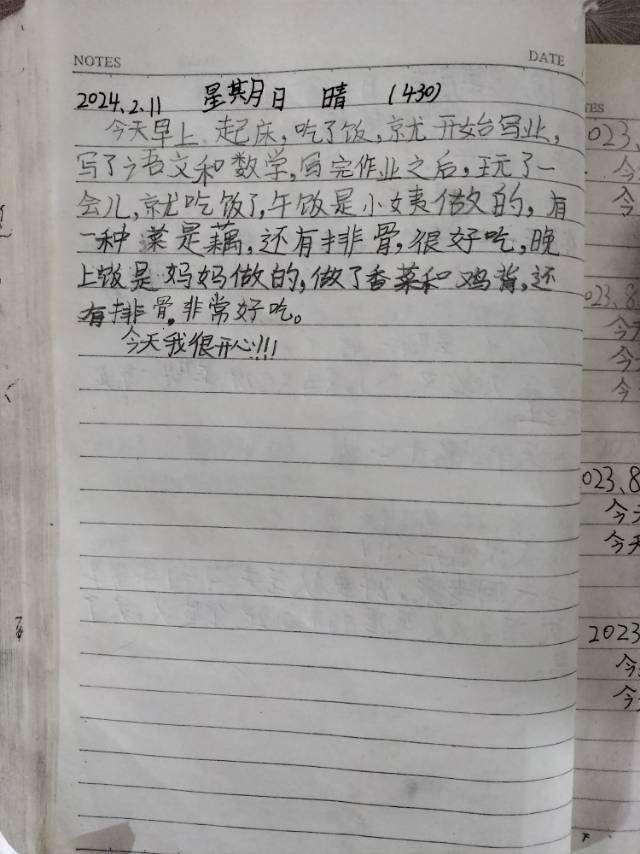 NOTES DATE
2024.2.11 星期日 晴 (430)
今天早上起床,吃了饭,就开始写业,
写了语文和数学,写完作业之后,玩了一
会儿,就吃饭了,午饭是小姨做的,有
一种菜是藕,还有排骨,很好吃,晚
上饭是妈妈做的,做了香菜和鸡背,还
有排骨,非常好吃。
今天我很开心!!!
TES
023.
今
今
023.8
今天
今
今
023.8
今天
今天
2023
今
今